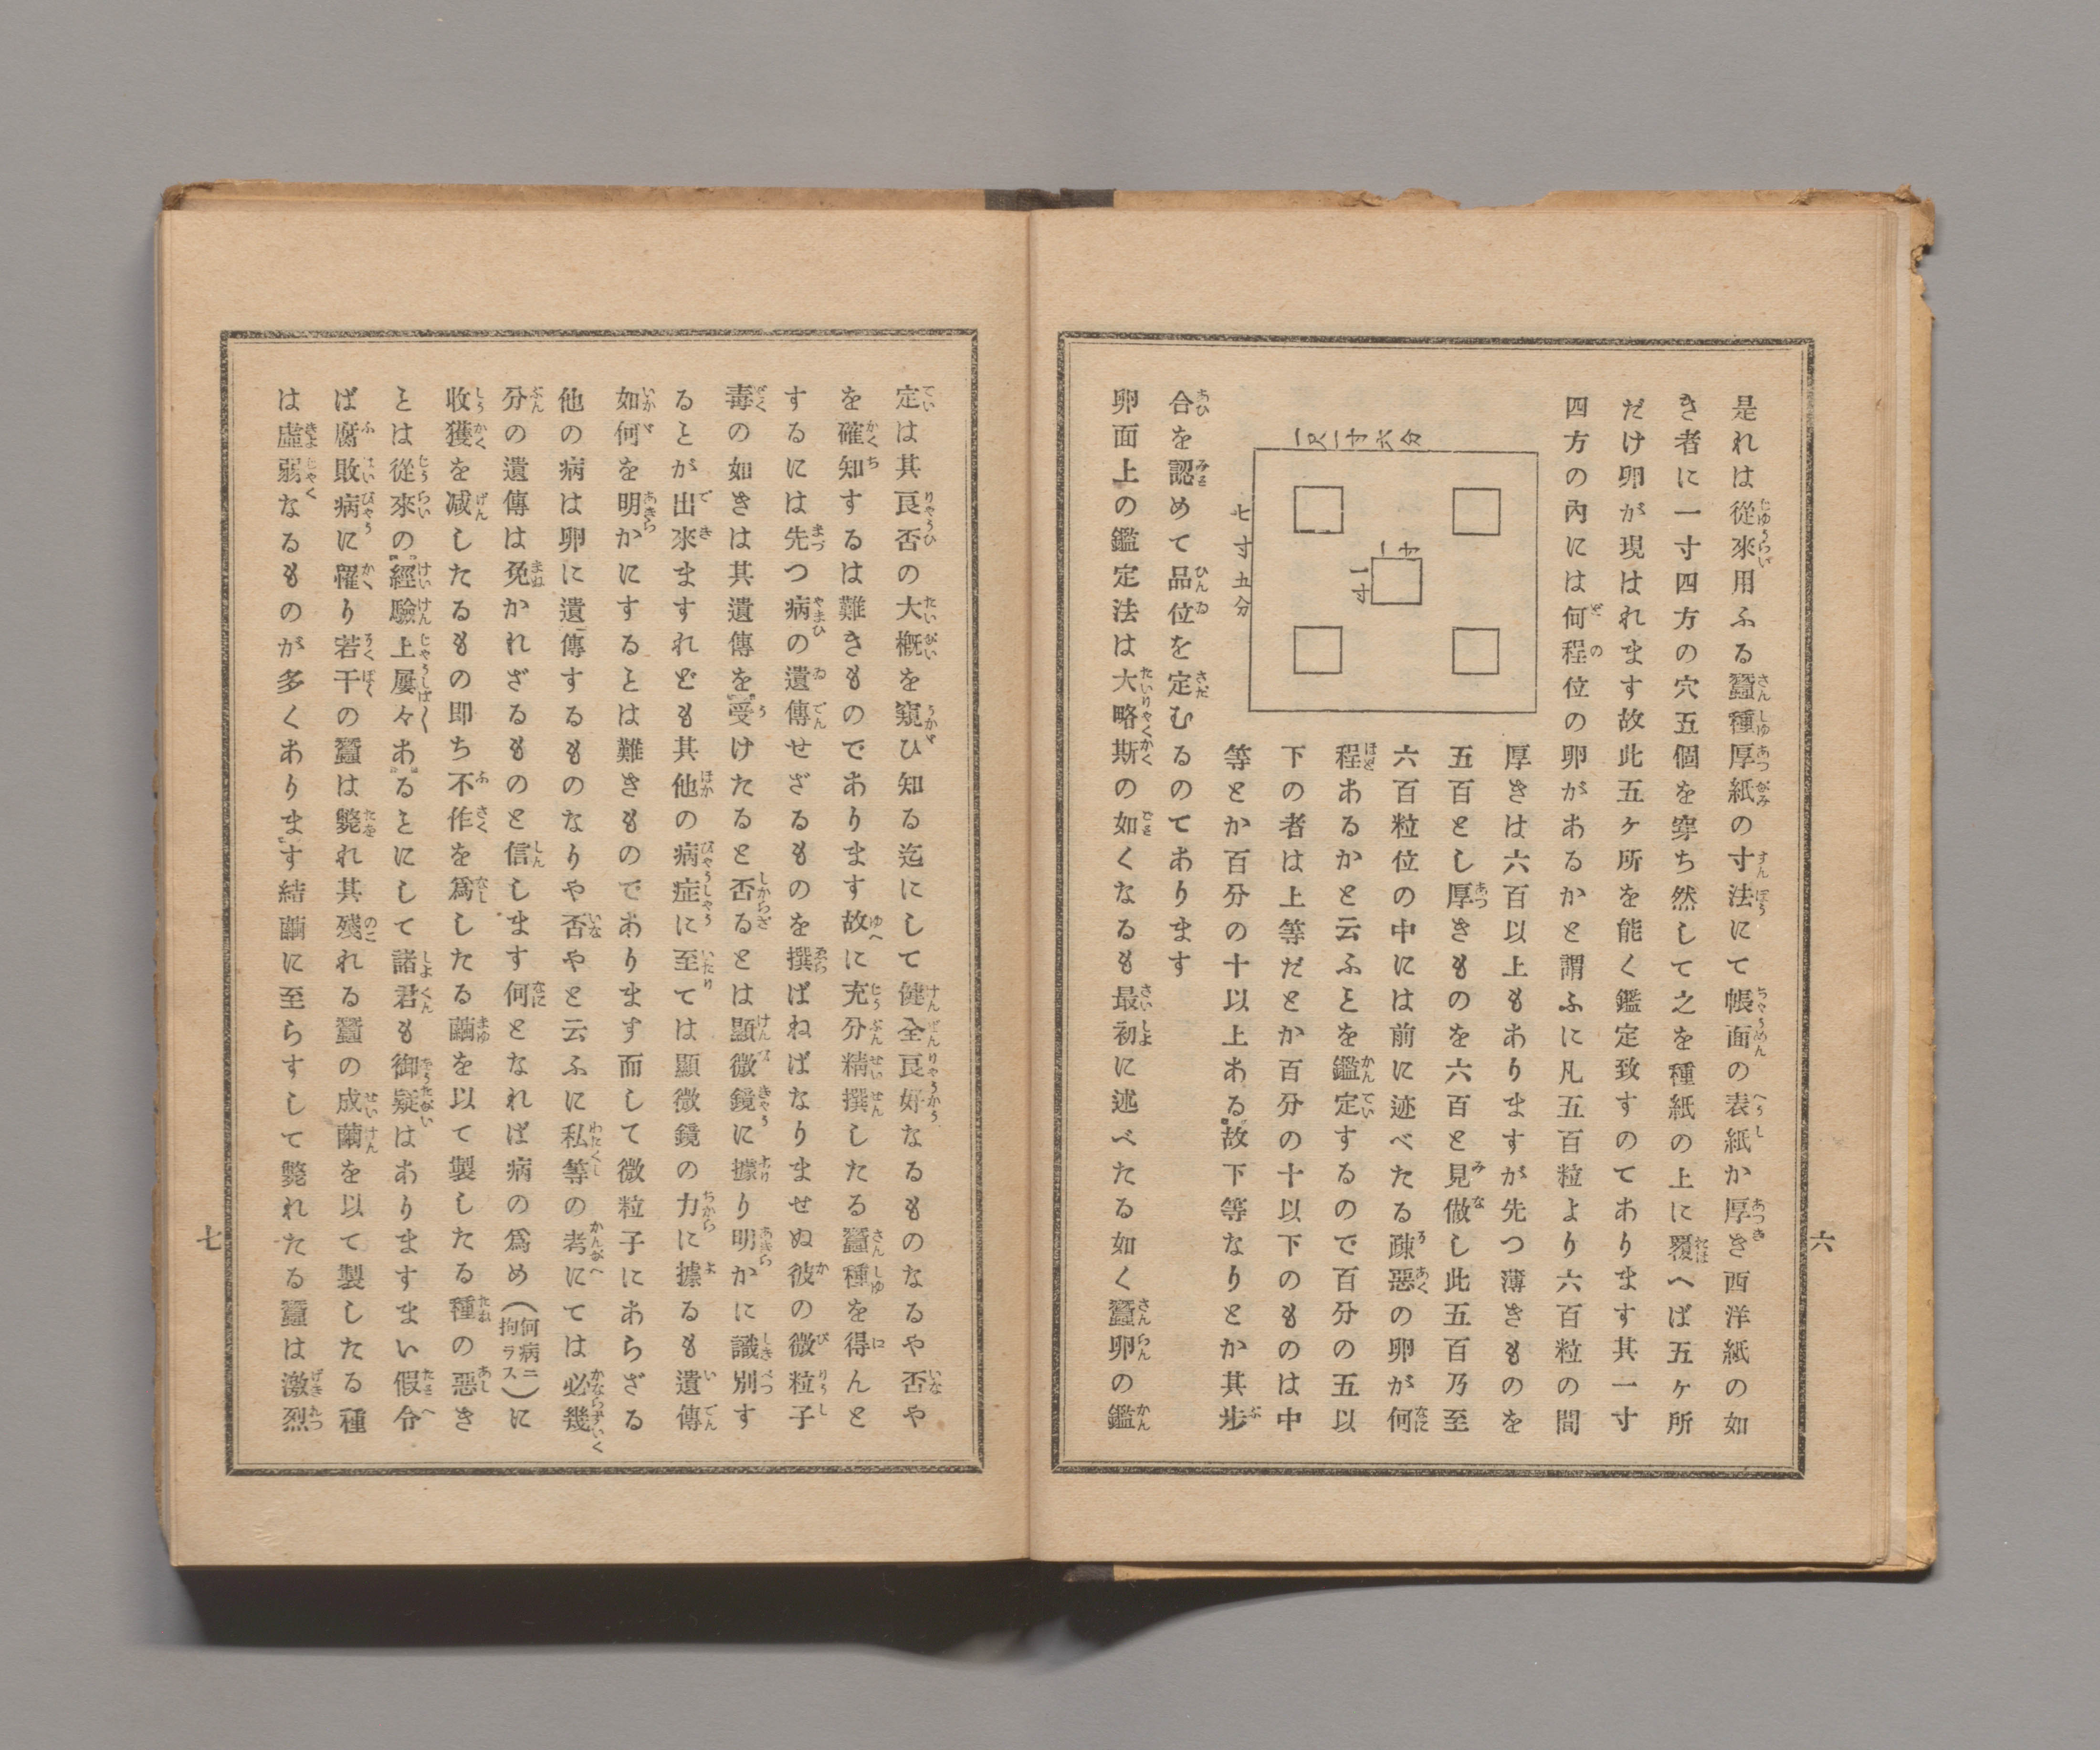 是れは從來用ふる蠶種厚紙の寸法にて帳面の表紙か厚き西洋紙の如
き者に一寸四方の穴五個を穿ち然して之を種紙の上に覆へば五ヶ所
だけ卵が現はれます故此五ヶ所を能く鑑定致すのてあります其一寸
四方の內には何程位の卵があるかと謂ふに凡五百粒より六百粒の間
厚きは六百以上もありますが先つ薄きものを
五百とし厚きものを六百と見做し此五百乃至
六百粒位の中には前に迹べたる疎惡の卵が何
程あるかと云ふとを鑑定するので百分の五以
下の者は上等だとか百分の十以下のものは中
等とか百分の十以上ある故下等なりとか其步
一寸
一寸
七寸五分
合を認めて品位を定むるのてあります
卵面上の鑑定法は大略斯の如くなるも最初に述べたる如く蠶卵の鑑
六
定は其良否の大槪を窺ひ知る迄にして健全良好なるものなるや否や
を確知するは難きものであります故に充分精撰したる蠶種を得んと
するには先つ病の遺傳せざるものを撰ばねばなりませぬ彼の微粒子
毒の如きは其遺傳を受けたると否るとは顯微鏡に據り明かに識別す
るとが出來ますれども其他の病症に至ては顯微鏡の力に據るも遺傳
如何を明かにするとは難きものであります而して微粒子にあらざる
他の病は卵に遺傳するものなりや否やと云ふに私等の考にては必幾
分の遺傳は免かれざるものと信します何となれば病の爲め（何病ニ拘ラス）に
收獲を减したるもの即ち不作を爲したる繭を以て製したる種の惡き
とは從來の經驗上屢々あるとにして諸君も御疑はありますまい假令
ば腐敗病に罹り若干の蠶は斃れ其殘れる蠶の成繭を以て製したる種
は虛弱なるものが多くあります結繭に至らすして斃れたる蠶は激烈
七